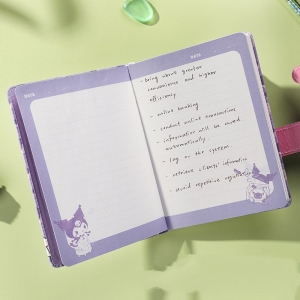 - bring about greater
convenience and higher
efficiency
- online banking
- conduct online transactions
- information will be saved
automatically
- log on the system
- retrieve clients' information
- avoid repetitive